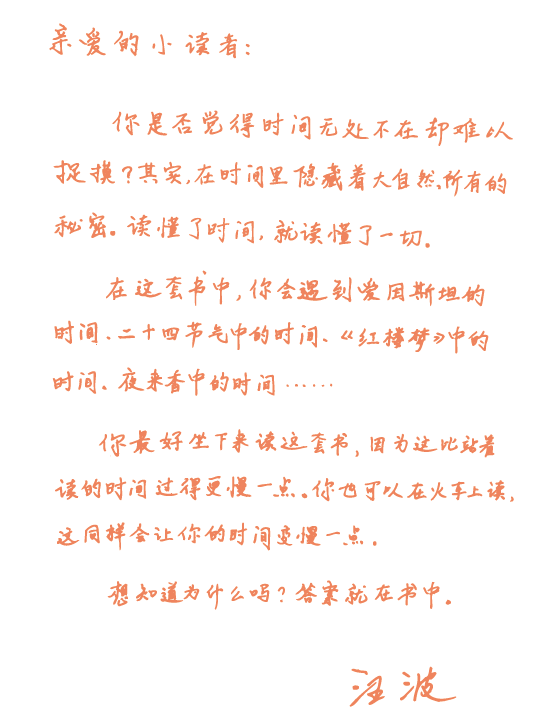 亲爱的小读者：
你是否觉得时间无处不在却难以
捉摸？其实，在时间里隐藏着大自然所有的
秘密。读懂了时间，就读懂了一切。
在这套书中，你会遇到爱因斯坦的
时间、二十四节气中的时间、《红楼梦》中的
时间、夜来香中的时间……
你最好坐下来读这套书，因为这比站着
读的时间过得更慢一点。你也可以在火车上读，
这同样会让你的时间变慢一点。
想知道为什么吗？答案就在书中。
汪波